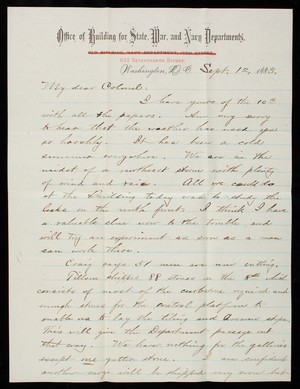 Office of Building for State, War, and Navy Departments,
OLD BUILDING, NAVY DEPARTMENT, 17TH STREET,
Seventeenth Street,
Washington, D. C. Sept. 12, 1883.
My dear Colonel:
I have yours of the 10th
with all the papers. Am very sorry
to hear that the weather has used you
so horribly. It has been a cold
summer everywhere. We are in the
midst of a northeast storm with plenty
of wind and rain. All we could do
at the Building today was to study the
leaks on the roofs. I think I have
a valuable clue now to the trouble, and
will try an experiment as soon as a man
can work there.
Craig says 81 men are now cutting.
Tillson shipped 88 stones on the 8th which
consists of most of the curbstone required and
enough stones for the central platform to
enable us to lay the tiling and steps.
This will give the Department passage out
that way. We have nothing for the gutters
except one gutter stone. I am confident
another will be shipped very soon but